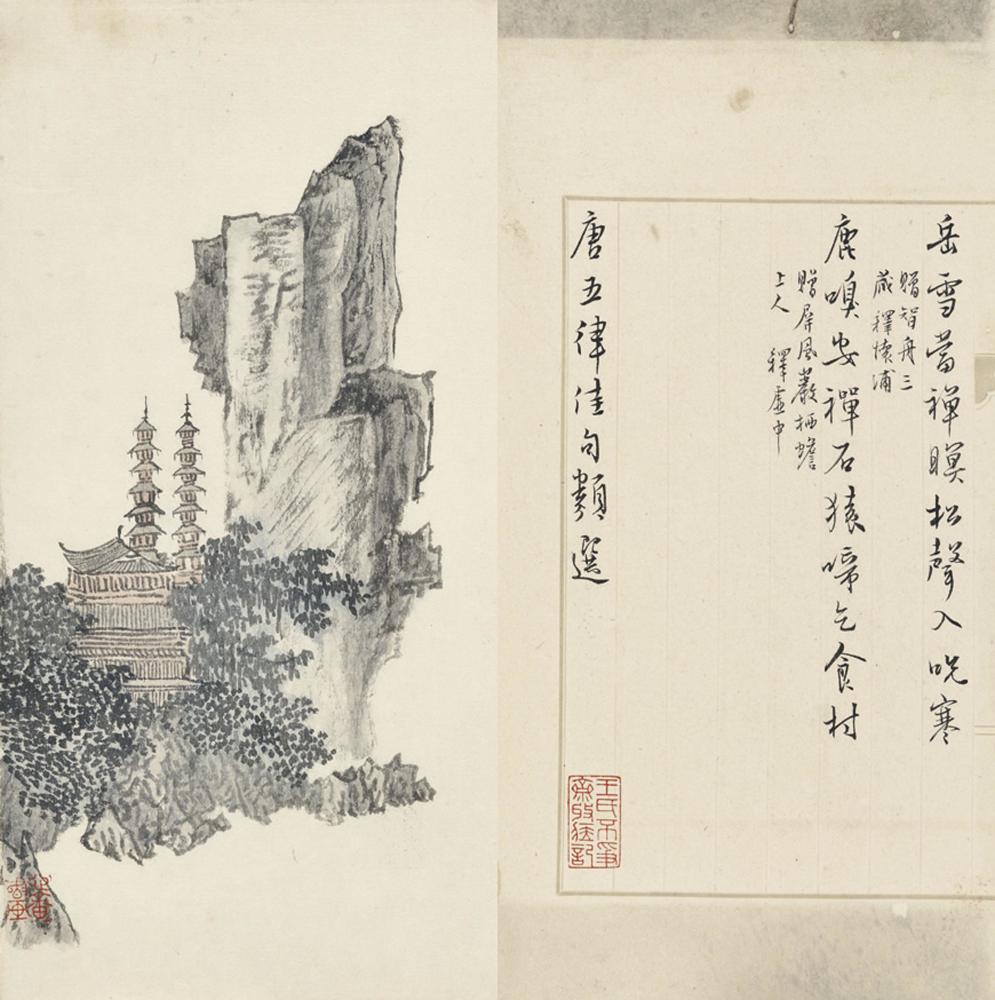 岳雪當禪暝松聲入呪寒
贈智舟三
藏 釋懷浦
鹿嗅安禪石猿啼乞食村
贈屏風巖栖蟾
上人 釋虛中
唐五律佳句類選
王氏不爭